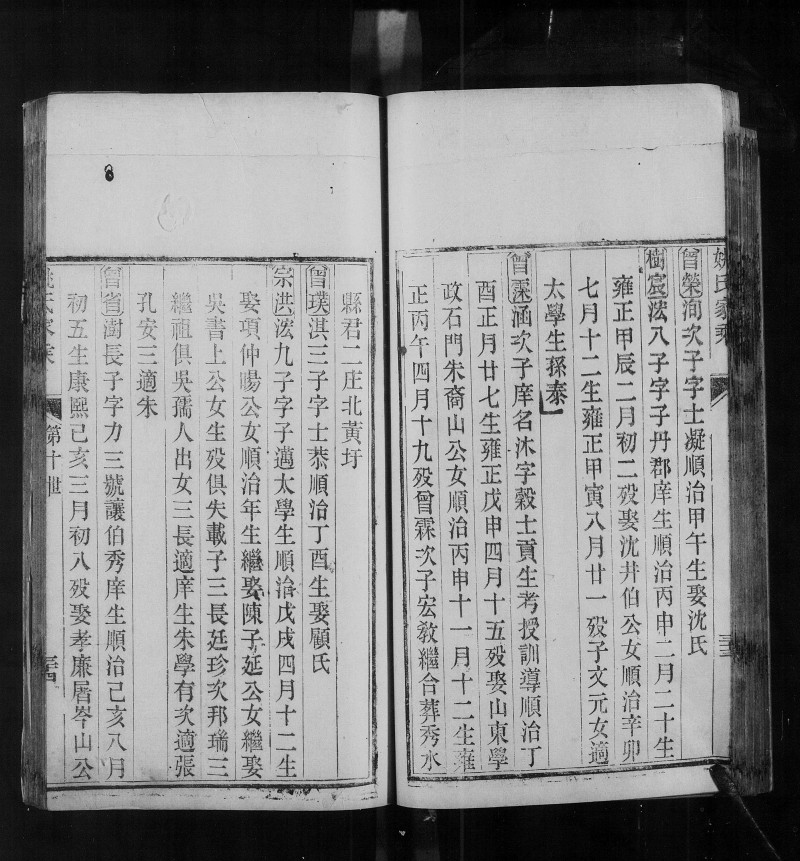 姚氏家乘
曾榮洵次子字士凝順治甲午生娶沈氏
樹宸浤八子字子丹郡庠生順治丙申二月二十生
雍正甲辰二月初二歿娶沈井伯公女順治辛卯
七月十二生雍正甲寅八月廿一歿子文元女適
太學生孫泰
曾霂涵次子庠名沐字穀士貢生考授訓導順治丁
酉正月廿七生雍正戊申四月十五歿娶山東學
政石門朱裔山公女順治丙申十一月十二生雍
正丙午四月十九歿曾霖次子宏敎繼合葬秀水
三三
縣君二庄北黃圩
曾璞淇三子字士恭順治丁酉生娶顧氏
宗洪浤九子字子邁太學生順治戊戌四月十二生
娶項仲暘公女順治年生繼娶陳子延公女繼娶
吳書上公女生歿俱失載子三長廷珍次邦瑞三
繼祖俱吳孺人出女三長適庠生朱學有次適張
孔安三適朱
曾省澍長子字力三號讓伯秀庠生順治己亥八月
初五生康熙己亥三月初八歿娶孝廉屠岑山公
姚氏家乘
第十世
三四
8